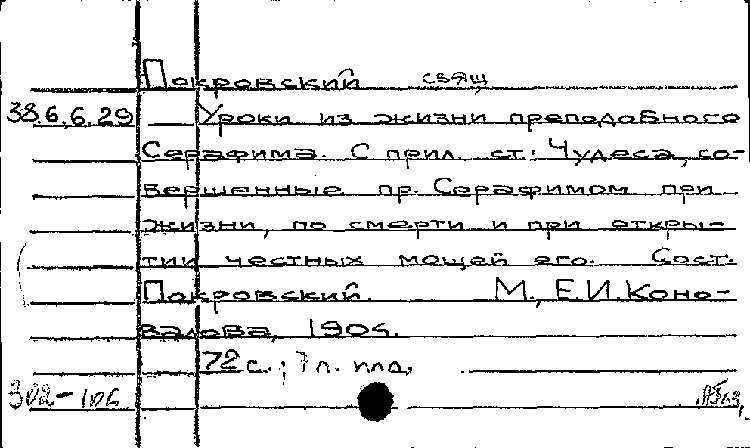 Покровский свящ
38.6.6.29 Уроки из жизни преподабного
Серафима. С прил. ст.: Чудеса, со-
вершенные пр. Серафимом при
жизни, по смерти и при откры-
тии честных мощей его. Сост.
Покровский. М., Е.И. Коно-
валова, 1904.
72 с.; 7 л. илл.
302-106